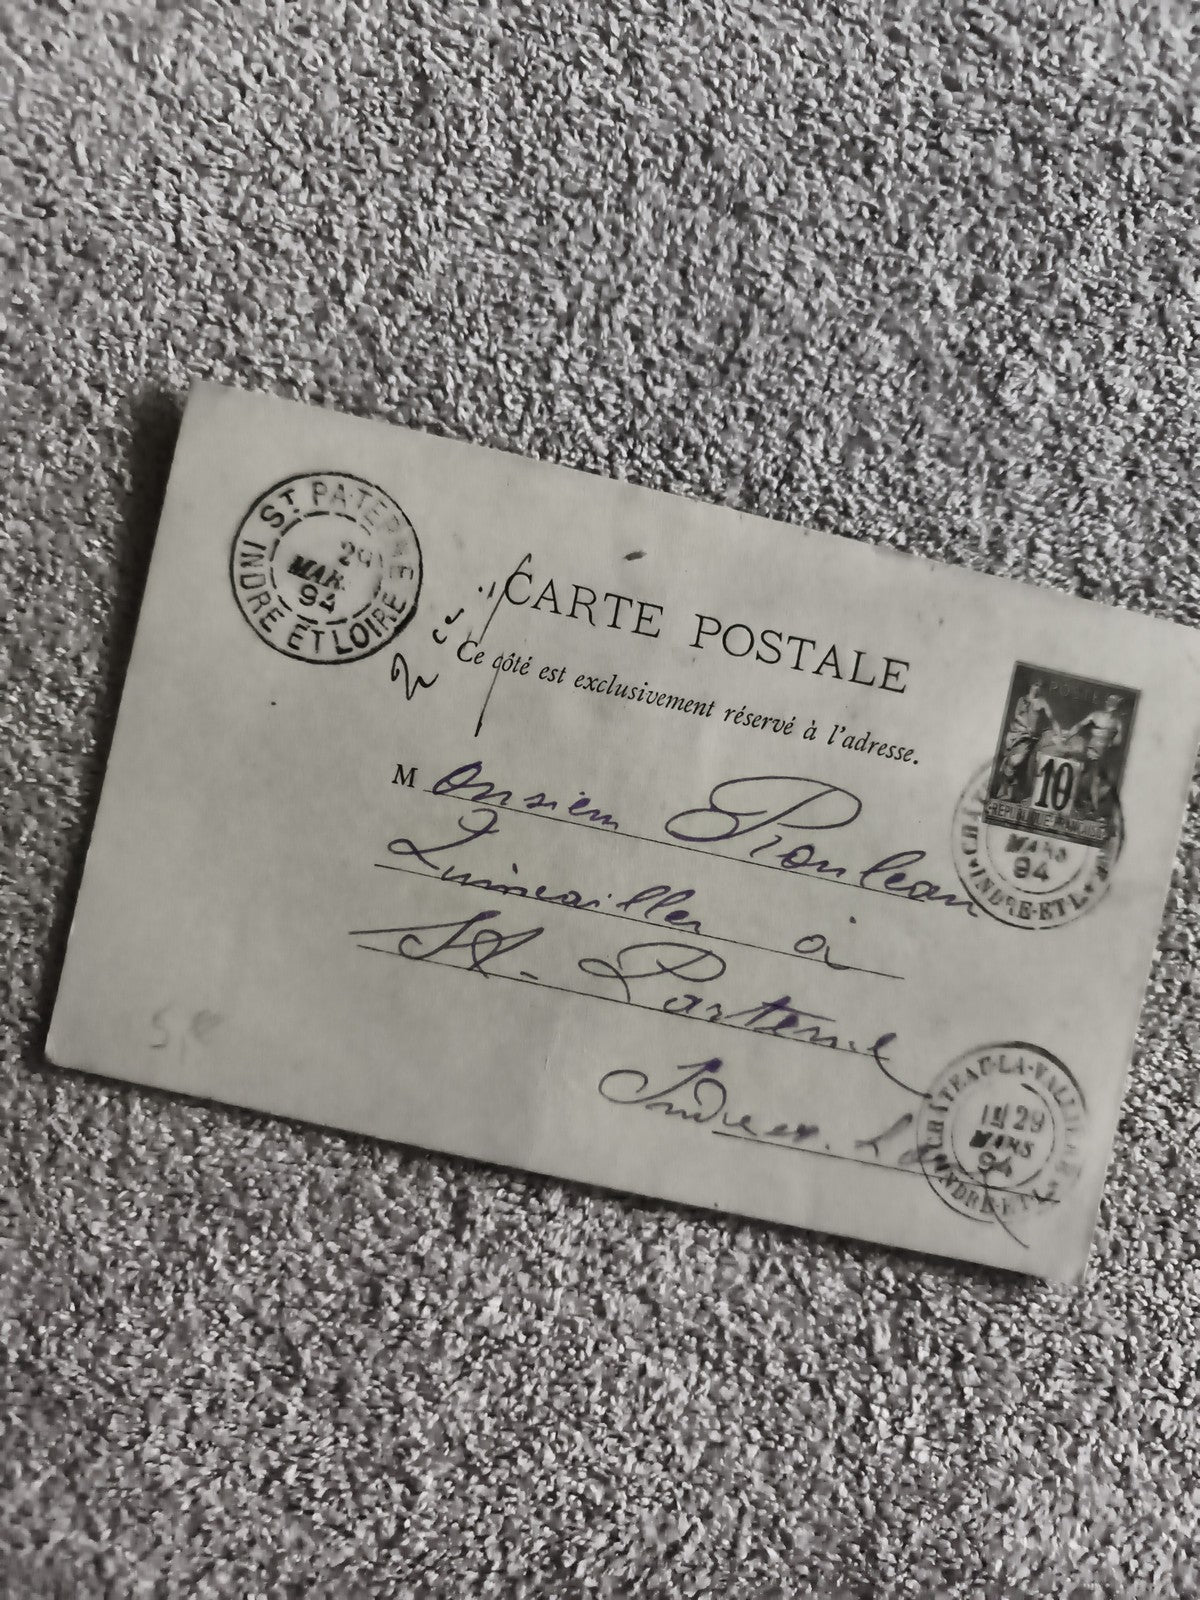 ST PATERNE
29
MAR.
94
INDRE ET LOIRE
CARTE POSTALE
Ce côté est exclusivement réservé à l'adresse.
POSTES
10
REPUBLIQUE FRANCAISE
MARS
94
INDRE-ET-L
Monsieur Rouleau
Quincailler à
St. Parterne
Indre et. L
CHÂTEAU-LA-VALLIERE
1E 29
MARS
94
INDRE-ET-L